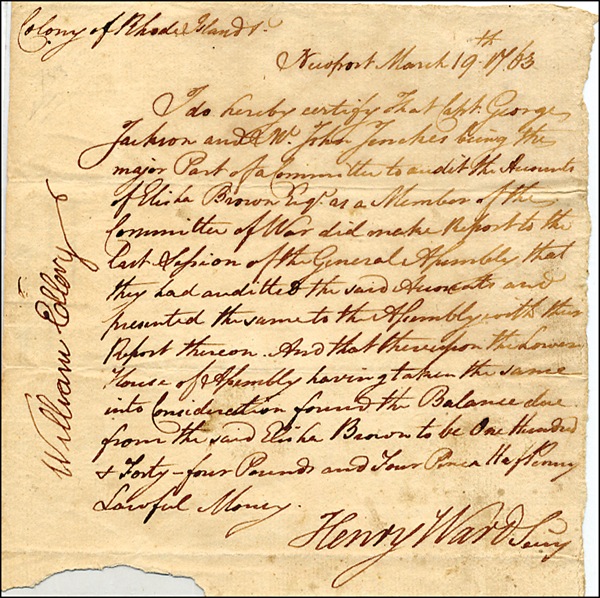 Colony of Rhode Island &c.
Newport March 19th 1763
I do hereby certify That Capt. George
Jackson and Mr. John Jenckes being the
major Part of a Committee to audit the Accounts
of Elisha Brown Esqr. as a Member of the
Committee of War did make Report to the
last Session of the General Assembly that
they had audited the said Accounts and
presented the same to the Assembly with their
Report thereon. And that thereupon the Lower
House of Assembly having taken the same
into Consideration found the Balance due
from the said Elisha Brown to be One Hundred
& Forty-four Pounds and Four Pence Half Penny
Lawful Money.
Henry Ward Secry
William Ellery